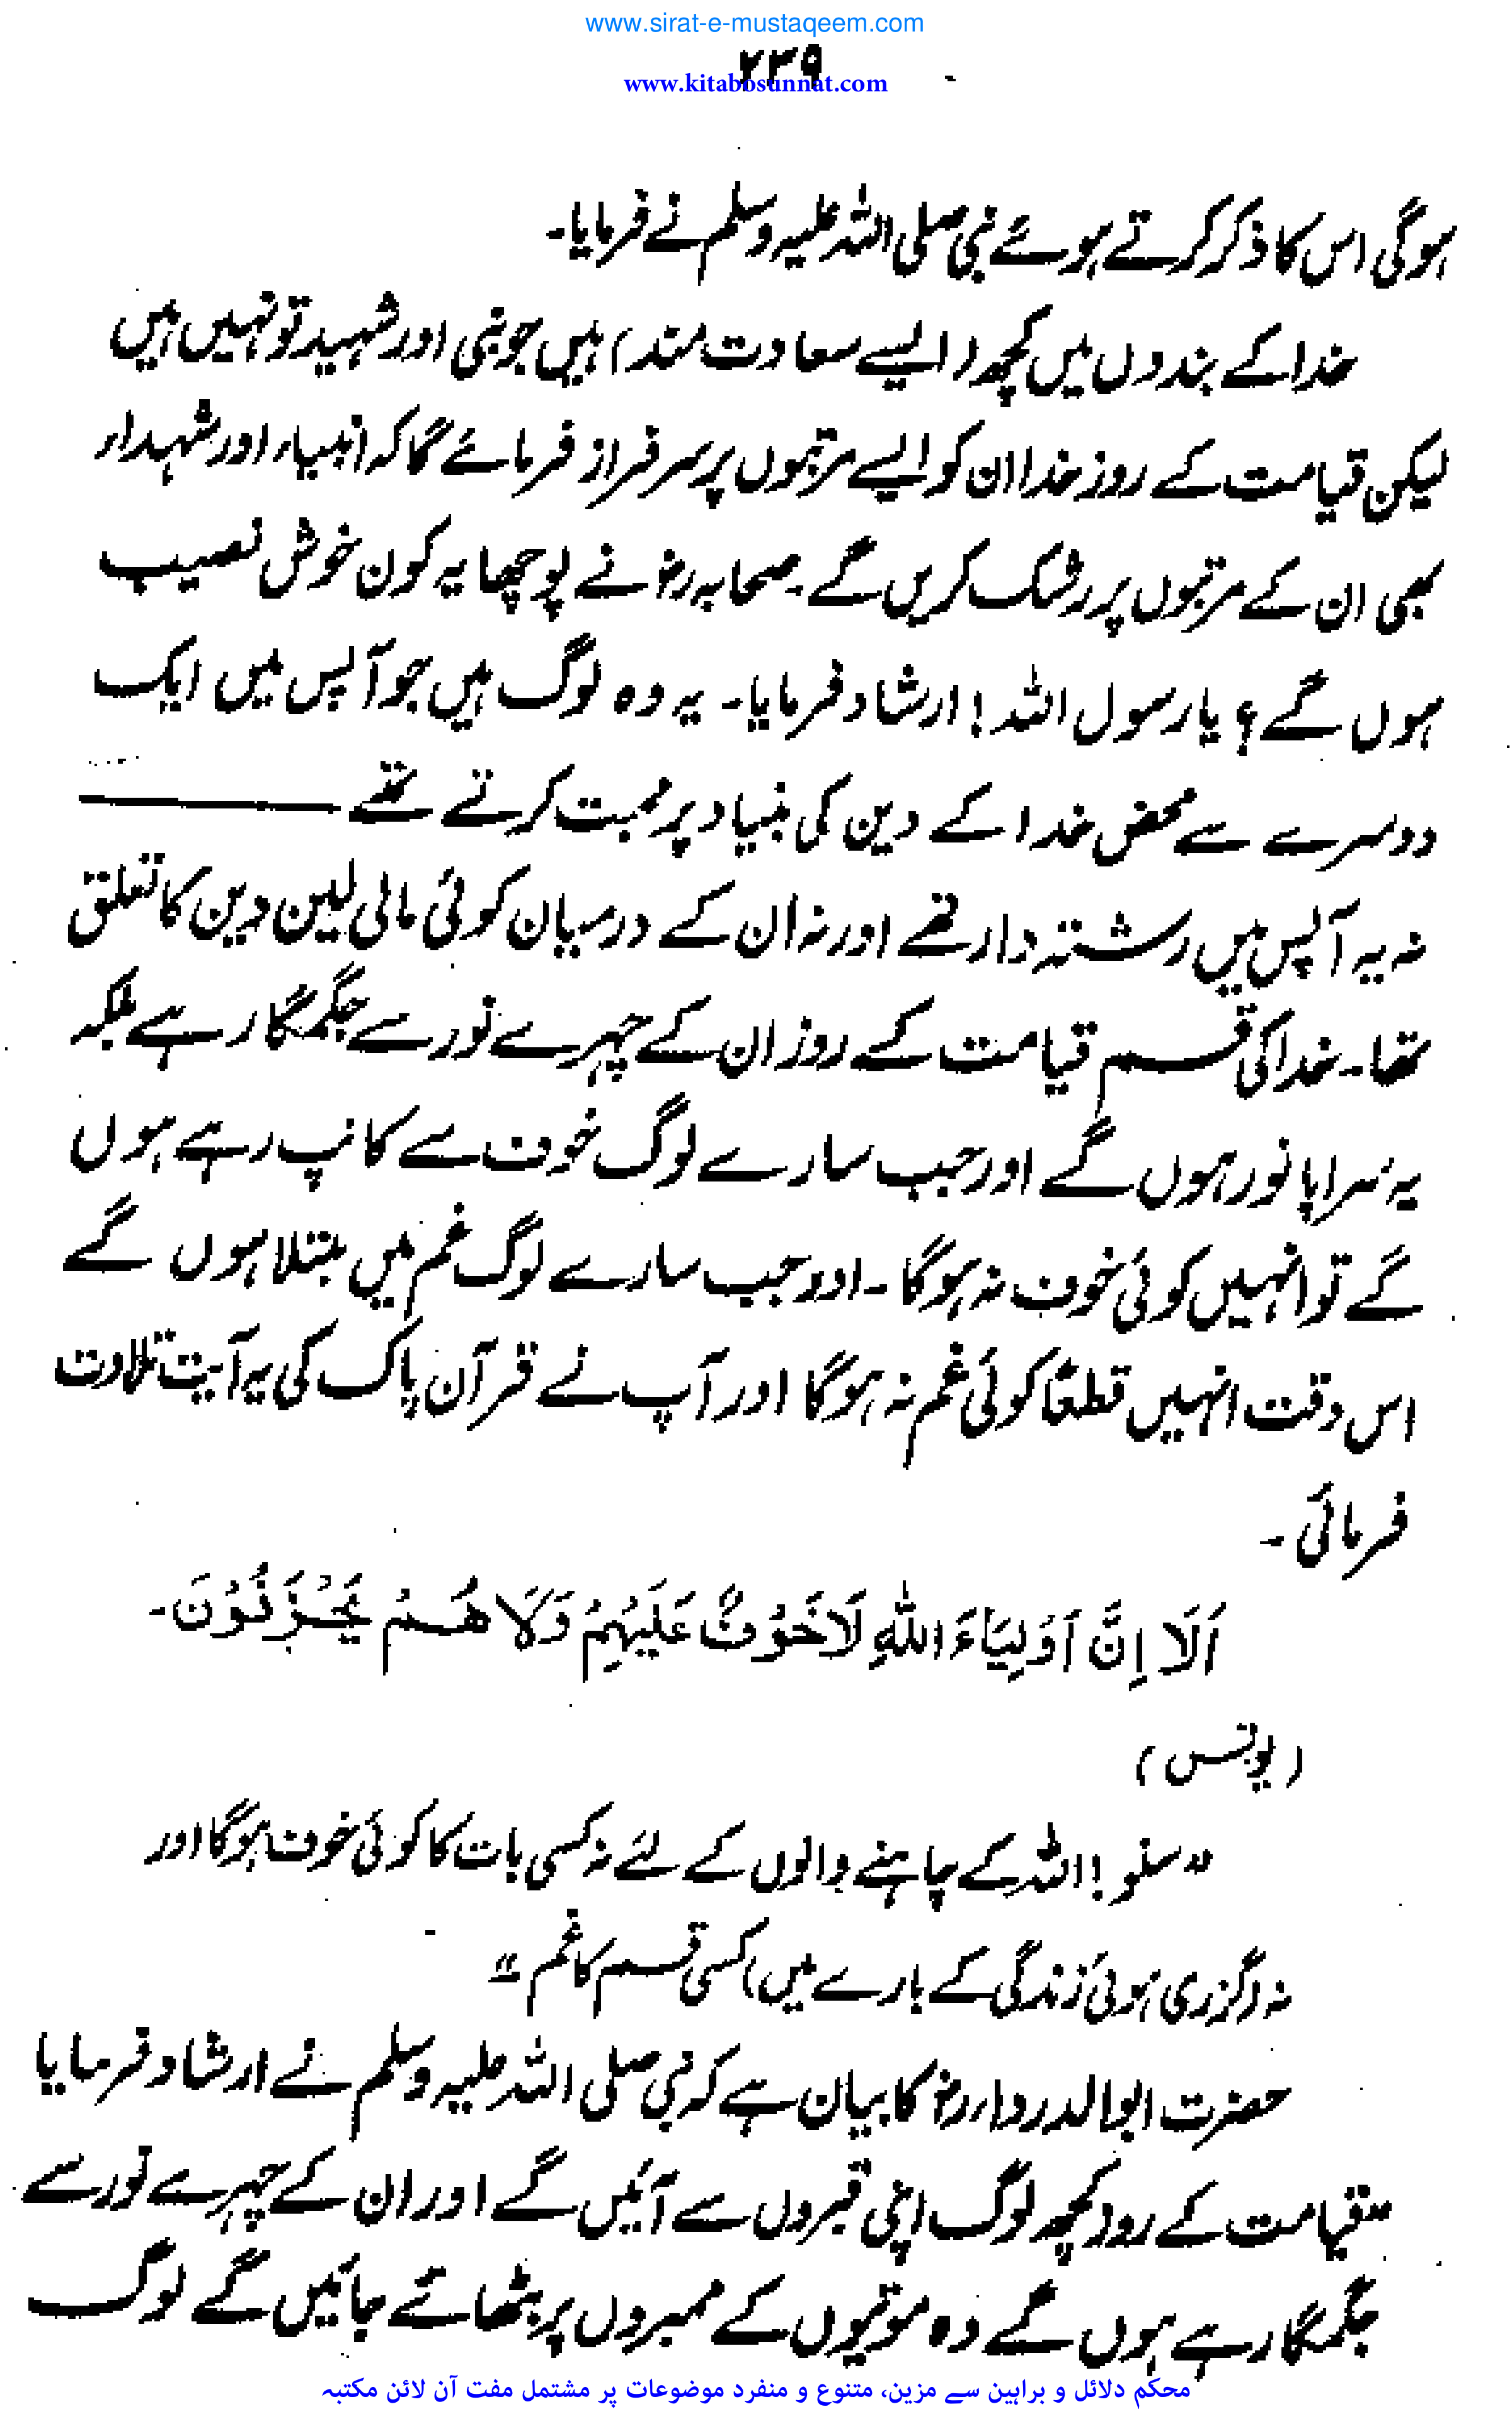 www.sirat-e-mustaqeem.com
۲۳۹
www.kitabosunnat.com
ہوگی اس کا ذکر کرتے ہوئے نبی صلی اللہ علیہ وسلم نے فرمایا۔
خدا کے بندوں میں کچھ (ایسے سعادت مند) ہیں جو نبی اور شہید تو نہیں ہیں
لیکن قیامت کے روز خدا ان کو ایسے مرتبوں پر سرفراز فرمائے گا کہ انبیاء اور شہداء
بھی ان کے مرتبوں پر رشک کریں گے۔ صحابہ رض نے پوچھا یہ کون خوش نصیب
ہوں گے؟ یا رسول اللہ! ارشاد فرمایا۔ یہ وہ لوگ ہیں جو آپس میں ایک
دوسرے سے محض خدا کے دین کی بنیاد پر محبت کرتے تھے ———
نہ یہ آپس میں رشتہ دار تھے اور نہ ان کے درمیان کوئی مالی لین دین کا تعلق
تھا۔ خدا کی قسم قیامت کے روز ان کے چہرے نور سے جگمگا رہے بلکہ
یہ سراپا نور ہوں گے اور جب سارے لوگ خوف سے کانپ رہے ہوں
گے تو انہیں کوئی خوف نہ ہوگا۔ اور جب سارے لوگ غم میں مبتلا ہوں گے
اس وقت انہیں قطعاً کوئی غم نہ ہوگا اور آپ نے قرآن پاک کی یہ آیت تلاوت
فرمائی۔
اَلَا اِنَّ اَوْلِيَاءَ اللّٰهِ لَا خَوْفٌ عَلَيْهِمْ وَلَا هُمْ يَحْزَنُوْنَ۔
(یونس)
"سنو! اللہ کے چاہنے والوں کے لئے نہ کسی بات کا کوئی خوف ہوگا اور
نہ (گزری ہوئی زندگی کے بارے میں) کسی قسم کا غم"
حضرت ابوالدرداء رض کا بیان ہے کہ نبی صلی اللہ علیہ وسلم نے ارشاد فرمایا
"قیامت کے روز کچھ لوگ اپنی قبروں سے آئیں گے اور ان کے چہرے نور سے
جگمگا رہے ہوں گے وہ موتیوں کے ممبروں پر بٹھائے جائیں گے لوگ
محکم دلائل و براہین سے مزین، متنوع و منفرد موضوعات پر مشتمل مفت آن لائن مکتبہ